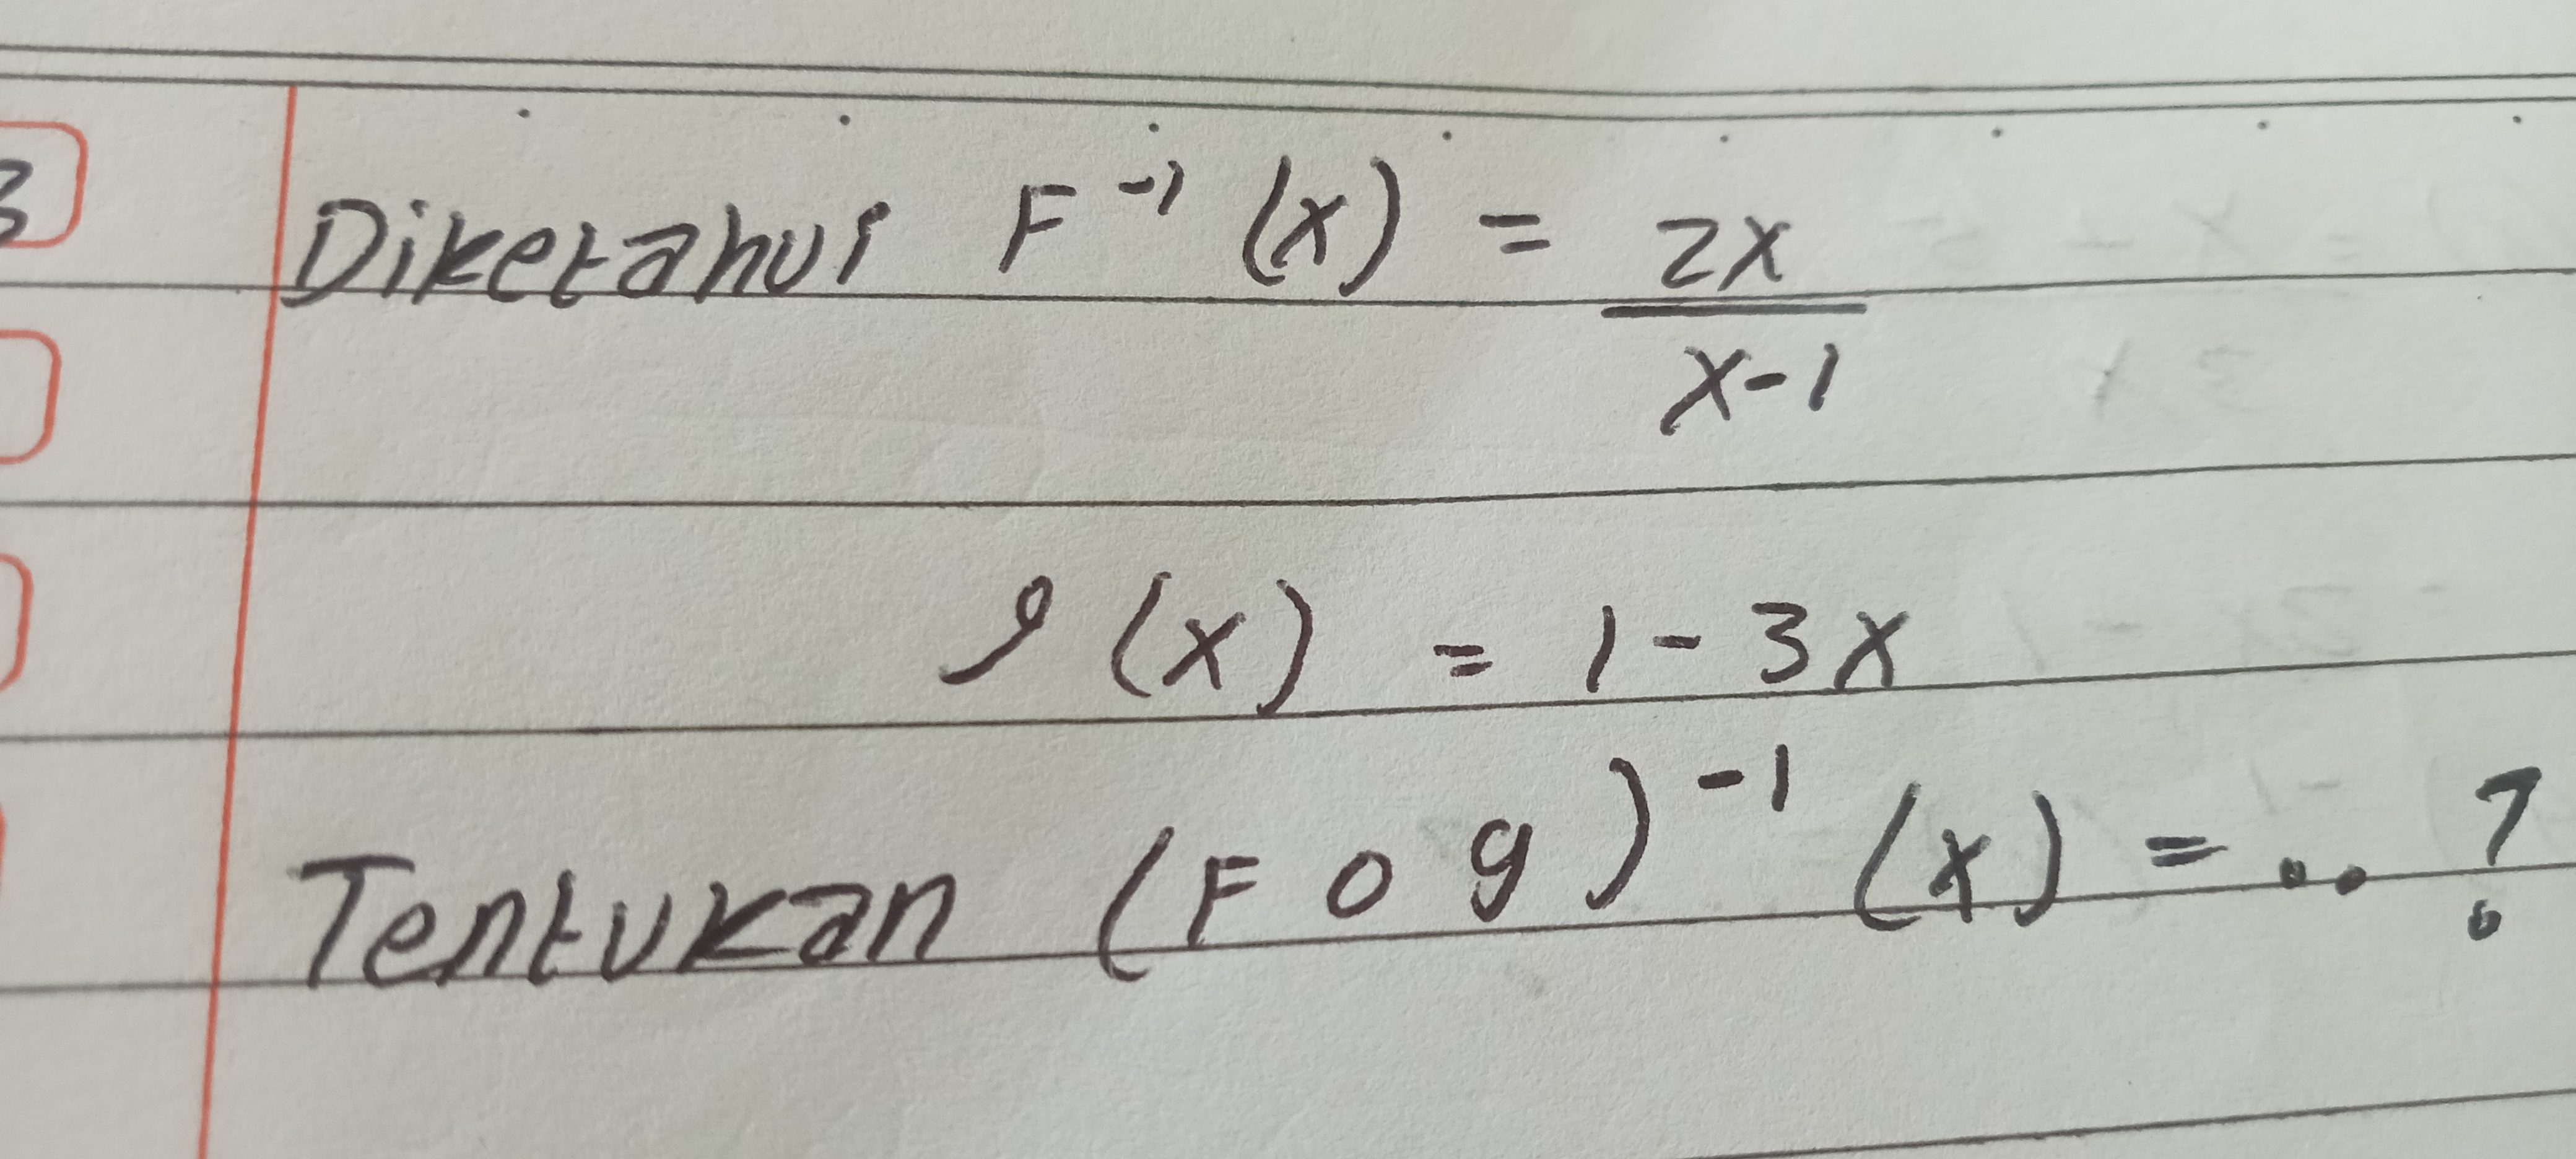 3
Diketahui F⁻¹ (x) = 2x
x-1
g (x) = 1-3x
Tentukan (F o g)⁻¹ (x) = .. ?